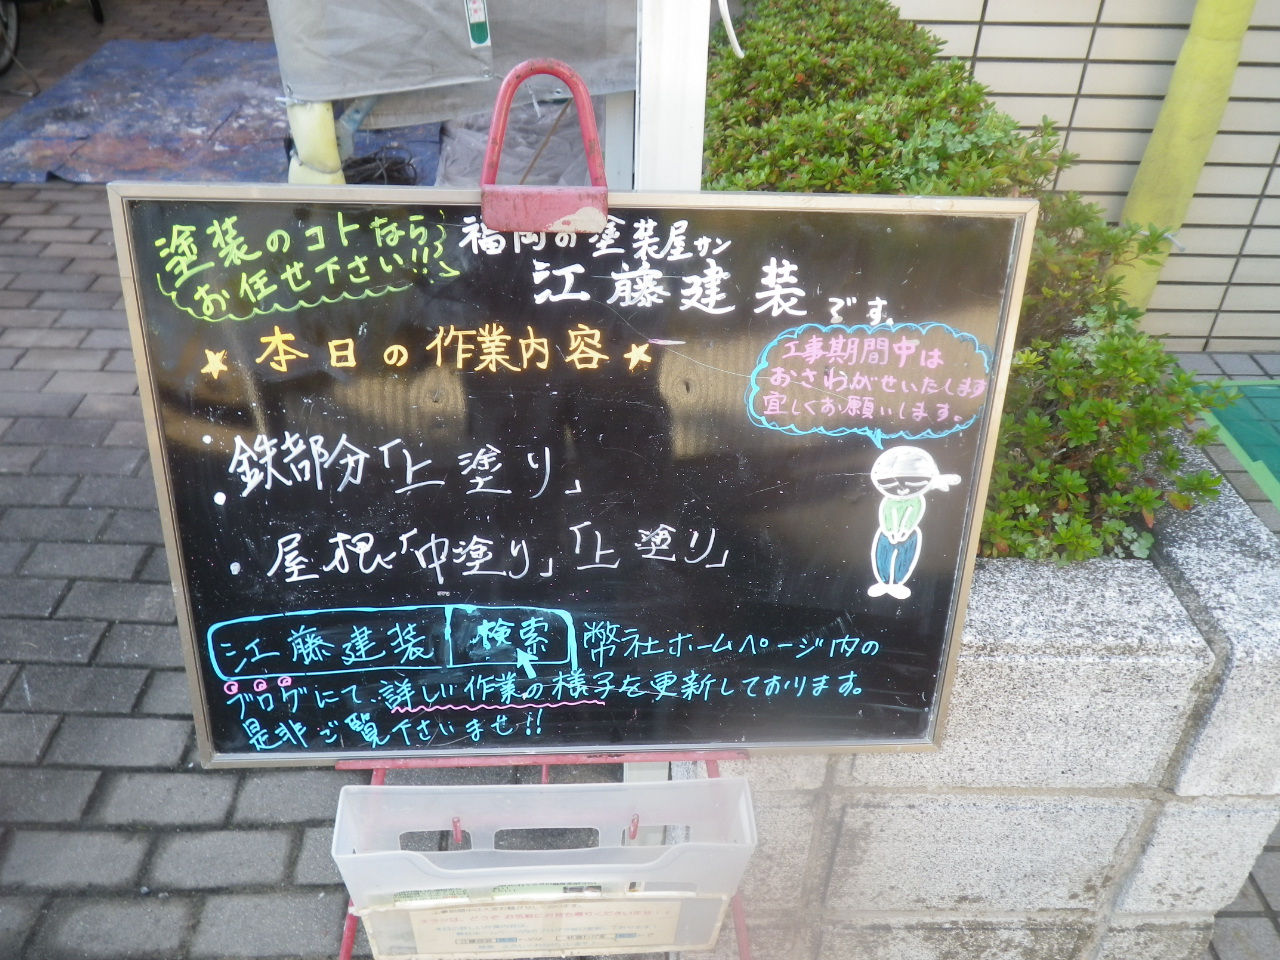 塗装のコトなら
お任せ下さい!!
福岡の塗装屋サン
江藤建装です。
★本日の作業内容★
工事期間中は
おさわがせいたします
宜しくお願いします。
・鉄部分「上塗り」
・屋根「中塗り」「上塗り」
江藤建装 検索 幣社ホームページ内の
ブログにて、詳しい作業の様子を更新しております。
是非ご覧下さいませ!!